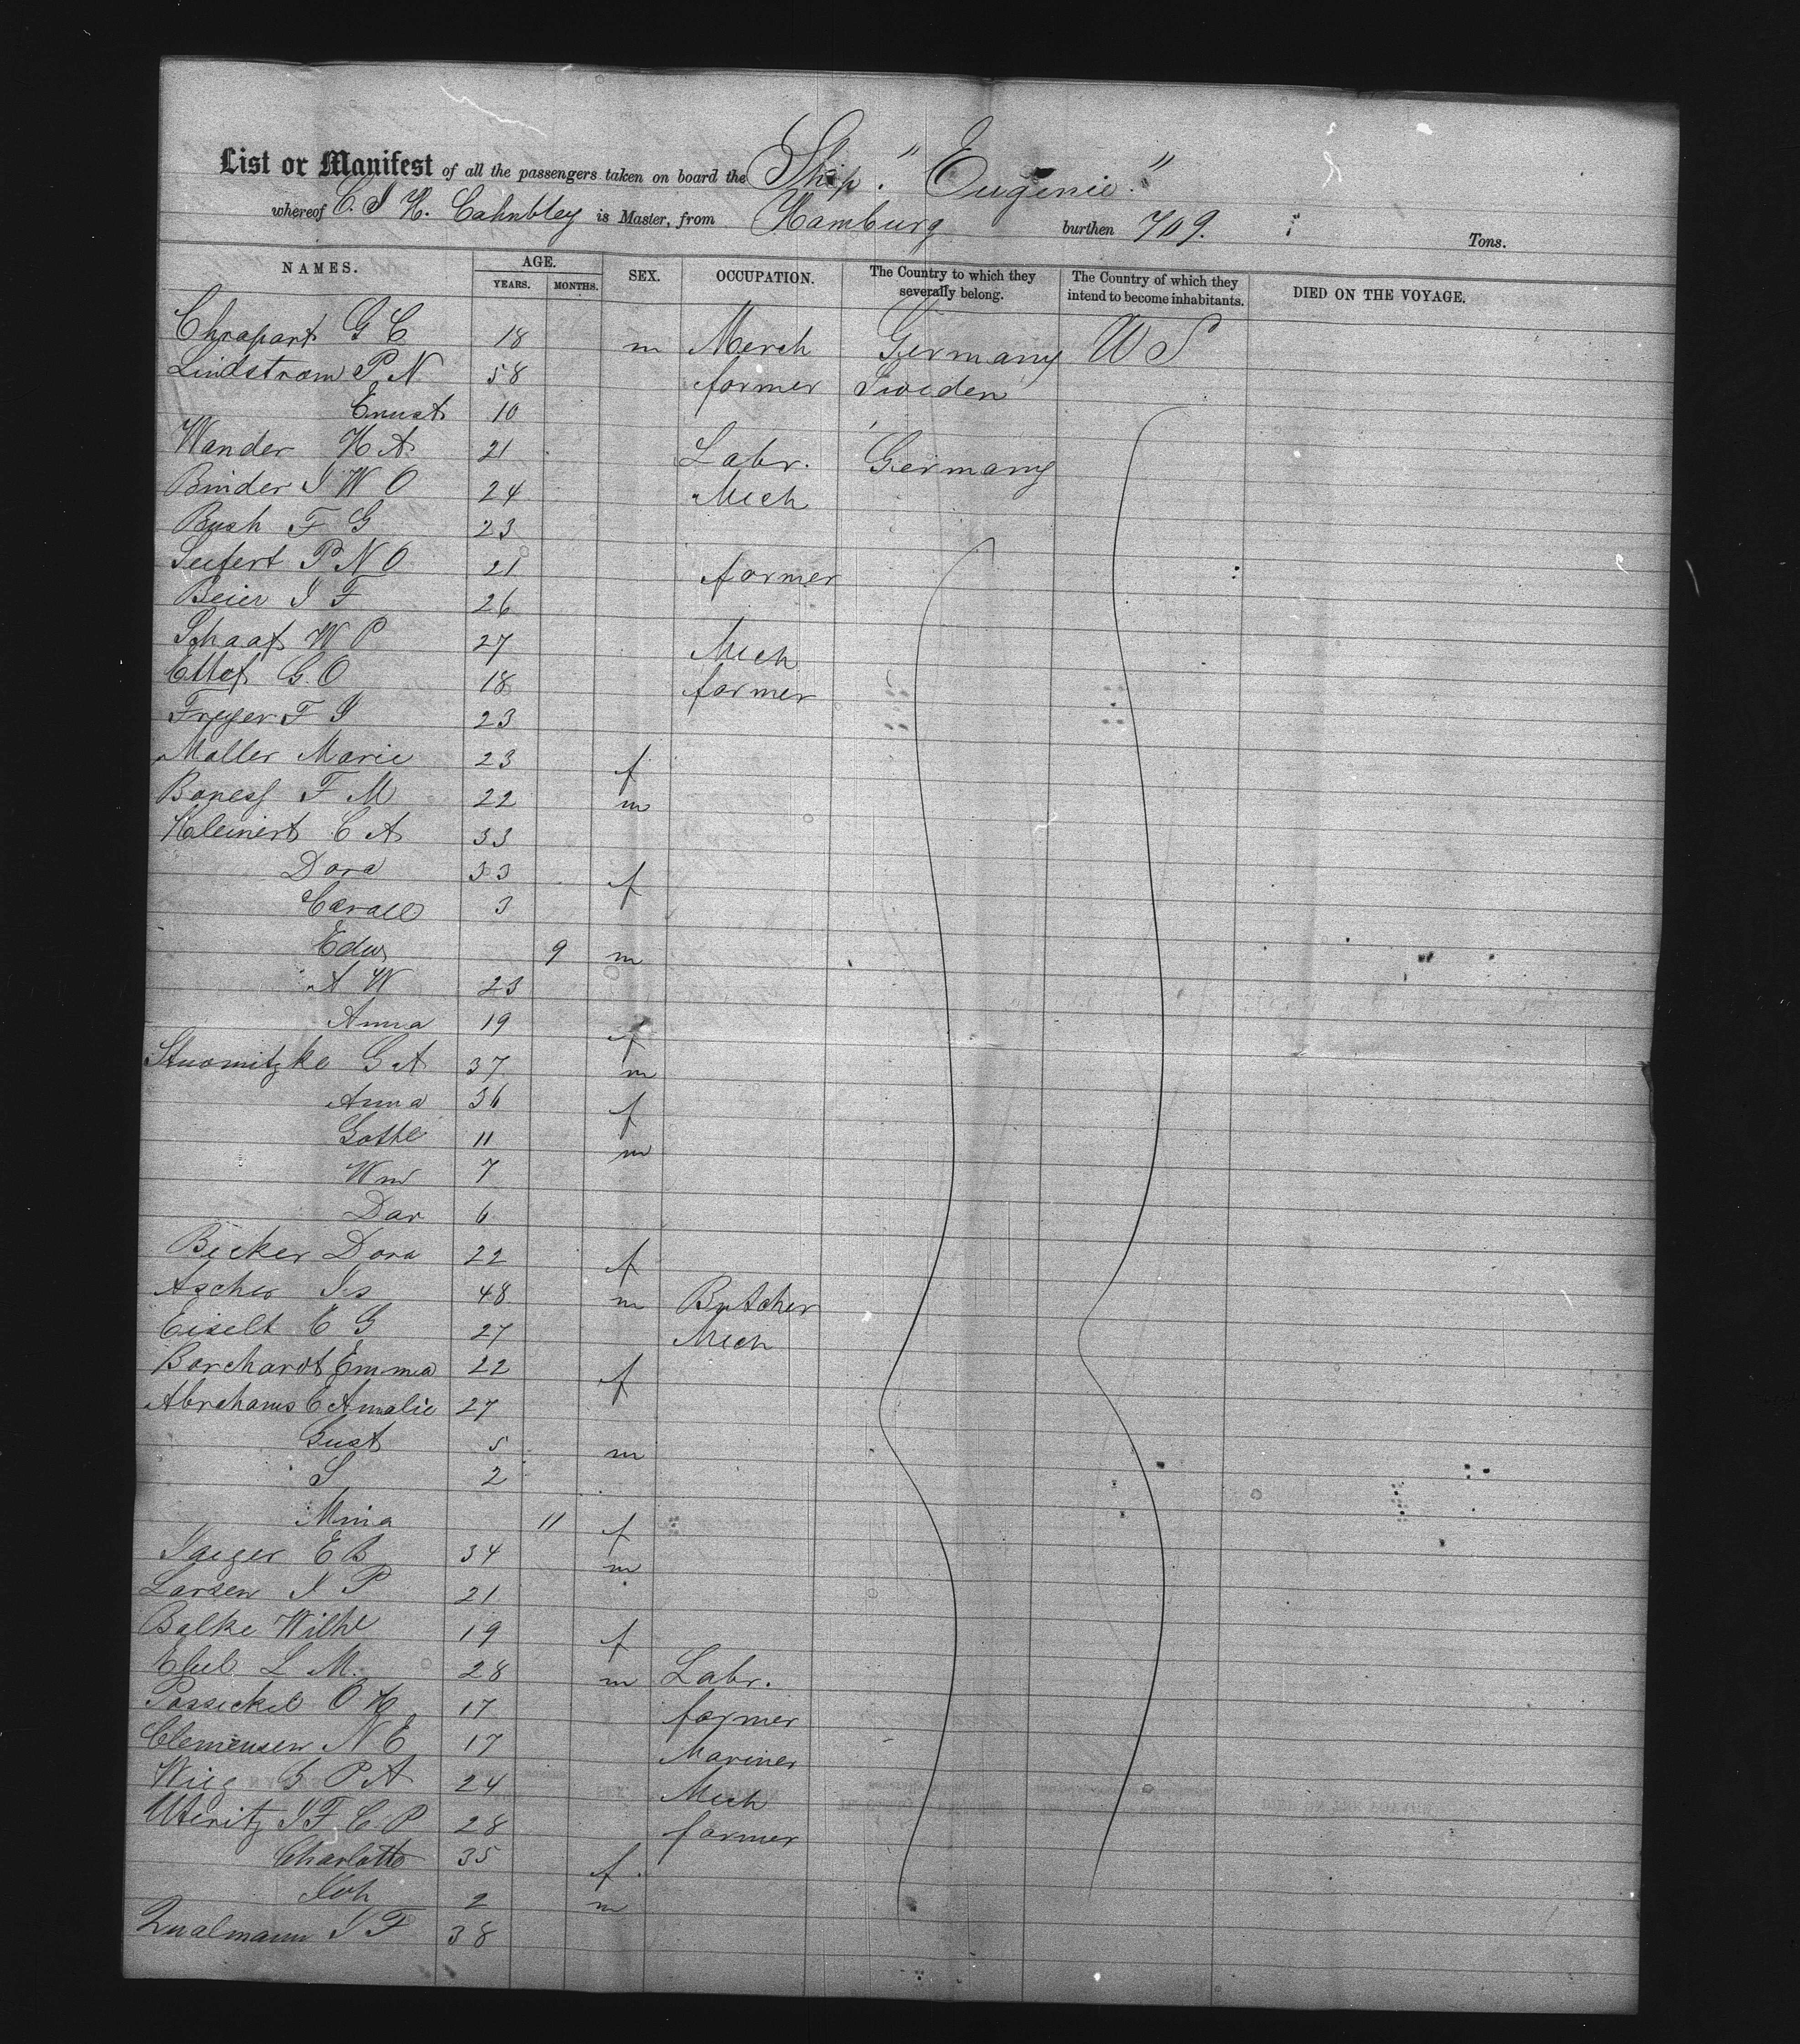 List or Manifest of all the passengers taken on board the Ship. "Eugenie."
whereof C. J. H. Cahnbley is Master, from Hamburg burthen 709. Tons.
NAMES. AGE. YEARS. MONTHS. SEX. OCCUPATION. The Country to which they severally belong. The Country of which they intend to become inhabitants. DIED ON THE VOYAGE.
Chrapart G C 18 m Merch Germany U S
Lindstrom P N 58 farmer Sweden
Ernust 10
Wander H A 21 Labr. Germany
Binder J W O 24 Mech
Bush F G 23
Seifert P N O 21 farmer
Beier J F 26
Schaaf W P 27 Mech
G O 18 farmer
Freyer F J 23
Moller Marie 23 f
F M 22 m
Kleinert C A 33
Dora 33 f
3
Edw 9 m
A W 23
Anna 19 f
G A 37 m
Anna 36 f
Gotthl 11 m
Wm 7
Dar 6
Becker Dora 22 f
Ascher Is 48 m Butcher
Eiselt C G 27 Mech
Borchardt Emma 22 f
Abrahams C Amalie 27
Gust 5 m
S 2
Mina 11 f
Jaeger E B 34 m
Larsen J P 21
Balke Wilhe 19 f
L M. 28 m Labr.
O H 17 farmer
Clemensen N E 17 Mariner
Wieg G P A 24 Mech
Uteritz J F C P 28 farmer
Charlotte 35 f
Joh 2 m
Qualmann J F 38